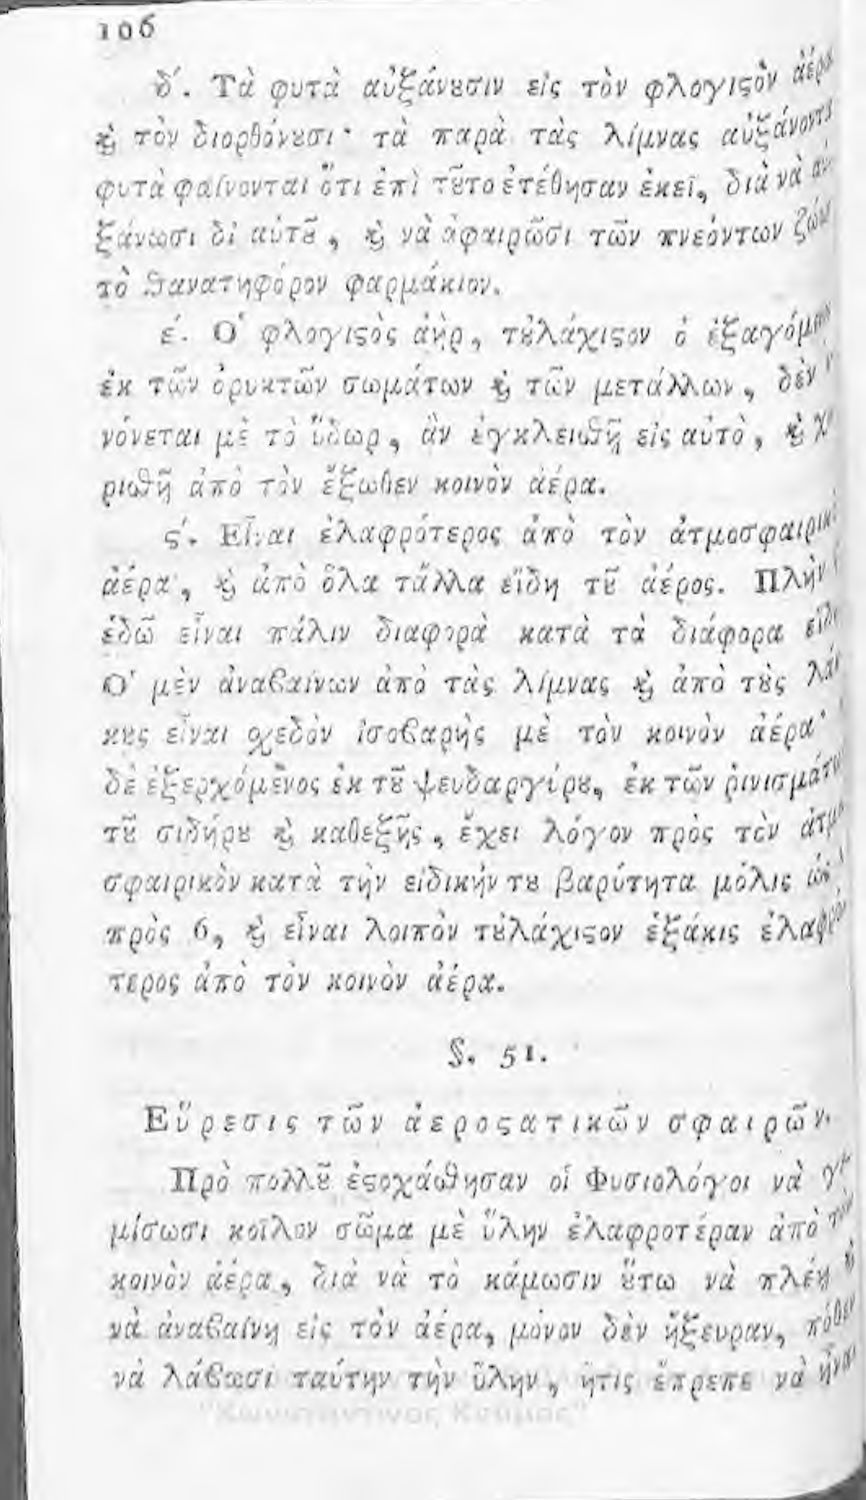 106
δ´. Τὰ φυτὰ αὐξάνȣσιν εἰς τὸν φλογιϛὸν ἀέρα
ϗ τὸν διορθόνȣσι· τὰ παρὰ τὰς λίμνας αὐξάνοντα
φυτὰ φαίνονται ὅτι ἐπὶ τȣ͂το ἐτέθησαν ἐκεῖ, διὰ νὰ αὐ-
ξάνωσι δἰ αὐτȣ͂, ϗ νὰ ἀφαιρῶσι τῶν πνεόντων ζώων
τὸ ϑανατηφόρον φαρμάκιον.
ε´. Ὁ φλογιϛὸς ἀὴρ, τȣλάχιϛον ὁ ἐξαγόμενος
ἐκ τῶν ὀρυκτῶν σωμάτων ϗ τῶν μετάλλων, δὲν
νόνεται μὲ τὸ ὕδωρ, ἂν ἐγκλεισϑῇ εἰς αὐτὸ, ϗ
ρισϑῇ ἀπὸ τὸν ἔξωθεν κοινὸν ἀέρα.
ϛ´. Εἶναι ἐλαφρότερος ἀπὸ τὸν ἀτμοσφαιρικὸν
ἀέρα, ϗ ἀπὸ ὅλα τἄλλα εἴδη τȣ͂ ἀέρος. Πλὴν
ἐδῶ εἶναι πάλιν διαφορὰ κατὰ τὰ διάφορα εἴδη
Ὁ μὲν ἀναβαίνων ἀπὸ τὰς λίμνας ϗ ἀπὸ τȣ̀ς λάκ-
κȣς εἶναι σχεδὸν ἰσοβαρὴς μὲ τὸν κοινὸν ἀέρα·
δὲ ἐξερχόμενος ἐκ τȣ͂ ψευδαργύρȣ, ἐκ τῶν ῥινισμάτων
τȣ͂ σιδήρȣ ϗ καθεξῆς, ἔχει λόγον πρὸς τὸν ἀτμο-
σφαιρικὸν κατὰ τὴν εἰδικήν τȣ βαρύτητα μόλις ὡς 1
πρὸς 6, ϗ εἶναι λοιπὸν τȣλάχιϛον ἑξάκις ἐλαφρό-
τερος ἀπὸ τὸν κοινὸν ἀέρα.
§. 51.
Εὕρεσις τῶν ἀεροϛατικῶν σφαιρῶν.
Πρὸ πολλȣ͂ ἐϛοχάσϑησαν οἱ Φυσιολόγοι νὰ γε-
μίσωσι κοῖλον σῶμα μὲ ὕλην ἐλαφροτέραν ἀπὸ τὸν
κοινὸν ἀέρα, διὰ νὰ τὸ κάμωσιν ȣ̔́τω νὰ πλέῃ ἢ
νὰ ἀναβαίνῃ εἰς τὸν ἀέρα, μόνον δὲν ἤξευραν, πόθεν
νὰ λάβωσι ταύτην τὴν ὕλην, ἥτις ἔπρεπε νὰ ἦναι
"Κωνσταντίνος Κούμας"